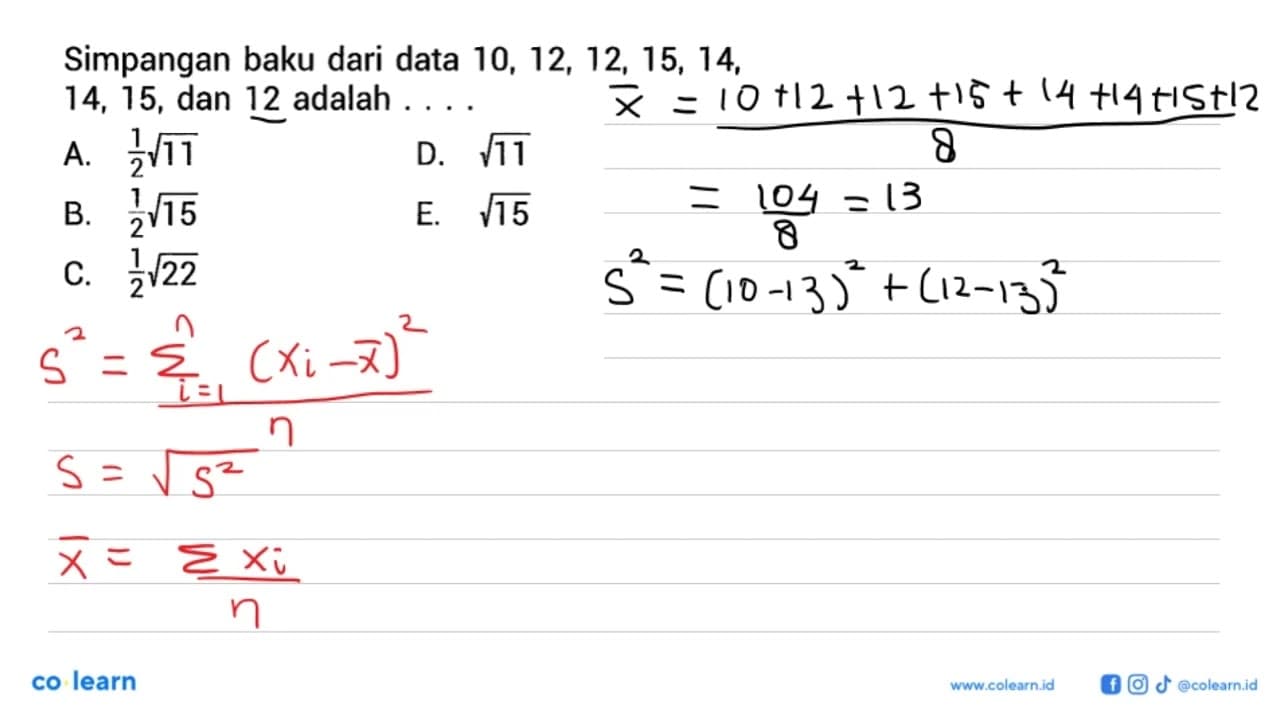 Simpangan baku dari data 10, 12, 12, 15, 14,
14, 15, dan 12 adalah . . . .
A. 1/2√11
B. 1/2√15
C. 1/2√22
D. √11
E. √15
x̄ = (10 +12 +12 +15 + 14 +14 +15 +12)/8
= 104/8 = 13
S² = (10 -13)² + (12 -13)²
S² = Σ_{i=1}^{n} (xi - x̄)² / n
S = √S²
x̄ = Σ xi / n
co learn
www.colearn.id
@colearn.id